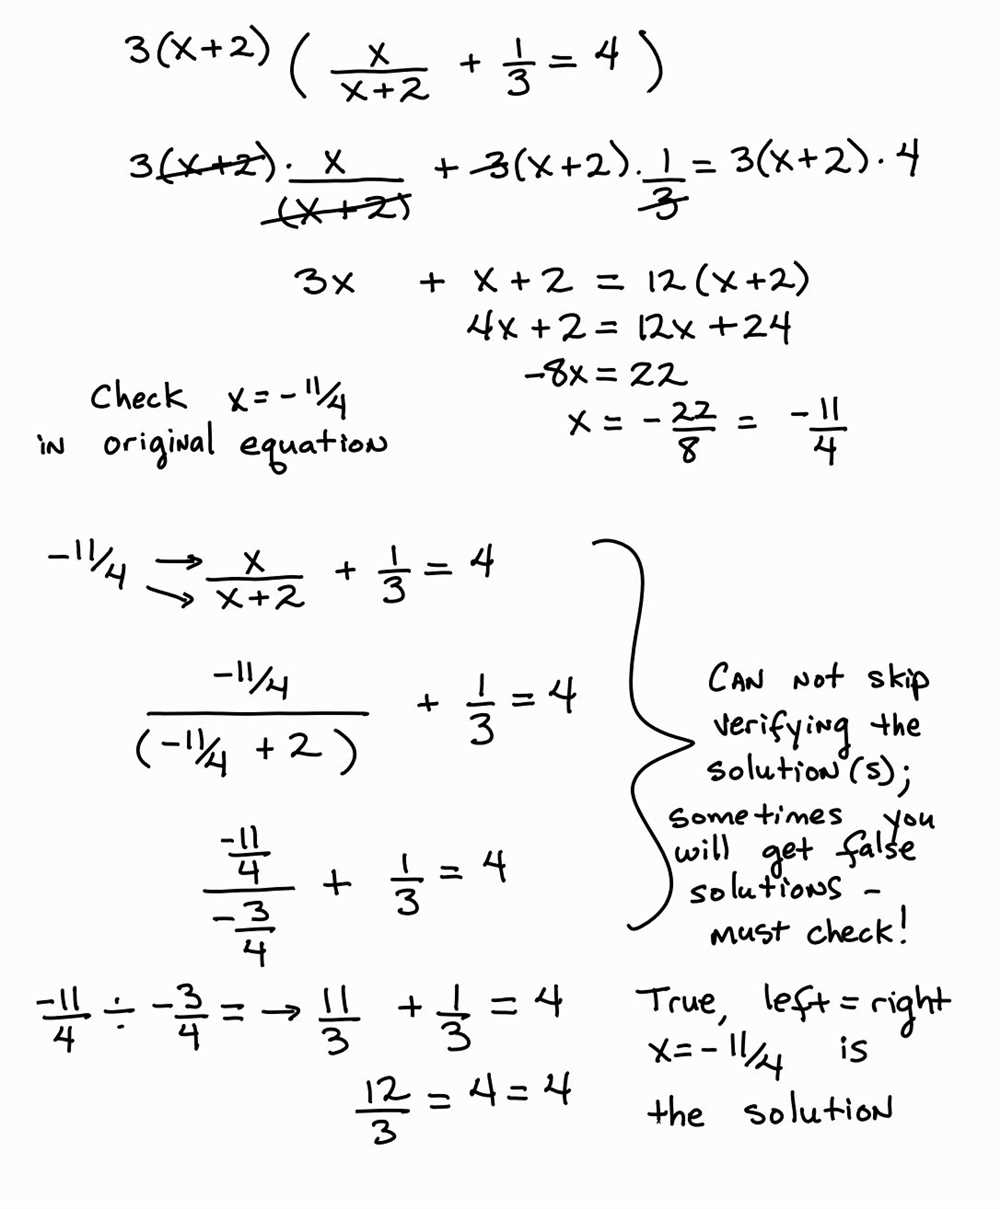 3(x+2) ( x/(x+2) + 1/3 = 4 )
3(x+2) · x/(x+2) + 3(x+2) · 1/3 = 3(x+2) · 4
3x + x + 2 = 12(x+2)
4x + 2 = 12x + 24
-8x = 22
x = - 22/8 = -11/4
Check x = - 11/4
in original equation
-11/4 → → x/(x+2) + 1/3 = 4
(-11/4)/(-11/4 + 2) + 1/3 = 4
(-11/4)/(-3/4) + 1/3 = 4
Can not skip
verifying the
solution(s);
sometimes you
will get false
solutions -
must check!
-11/4 ÷ -3/4 = → 11/3 + 1/3 = 4
12/3 = 4 = 4
True, left = right
x = - 11/4 is
the solution